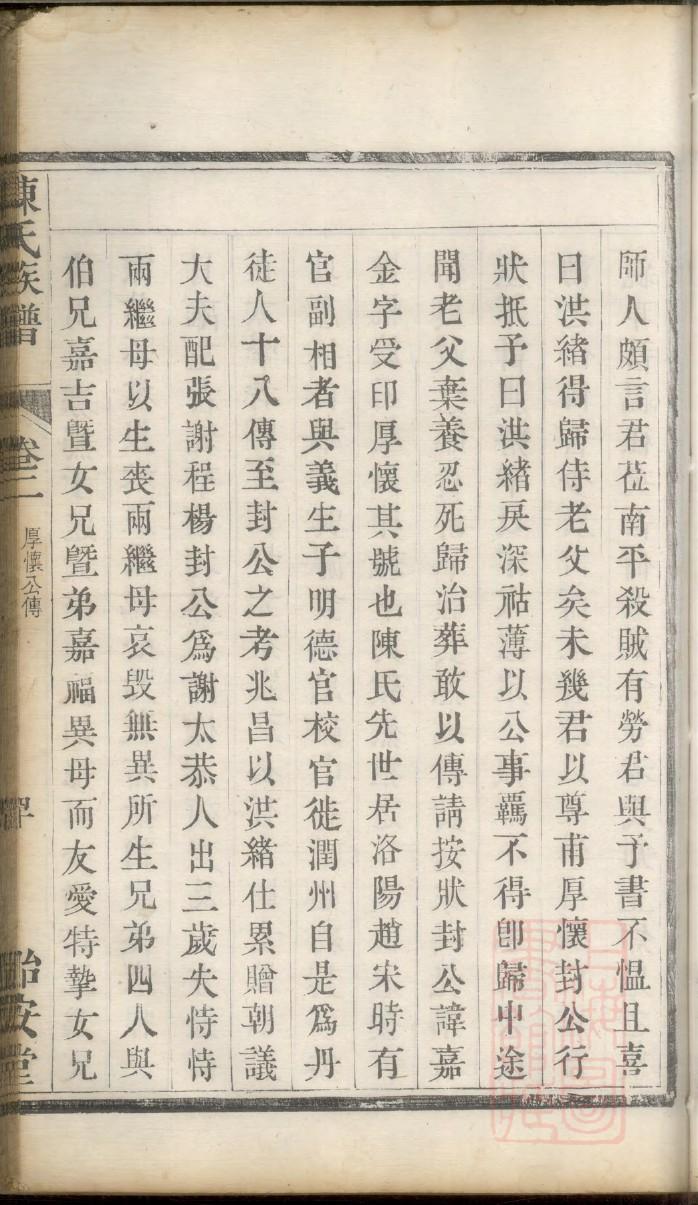 師人頗言君莅南平殺賊有勞君與予書不慍且喜
曰洪緒得歸侍老父矣未幾君以尊甫厚懷封公行
狀抵予曰洪緒戾深祜薄以公事羈不得卽歸中途
聞老父棄養忍死歸治葬敢以傳請按狀封公諱嘉
金字受印厚懷其號也陳氏先世居洛陽趙宋時有
官副相者與義生子明德官校官徙潤州自是爲丹
徒人十八傳至封公之考兆昌以洪緒仕累贈朝議
大夫配張謝程楊封公爲謝太恭人出三歲失恃恃
兩繼母以生喪兩繼母哀毀無異所生兄弟四人與
伯兄嘉吉暨女兄暨弟嘉福異母而友愛特摯女兄
陳氏族譜
卷二
厚懷公傳
怡安堂